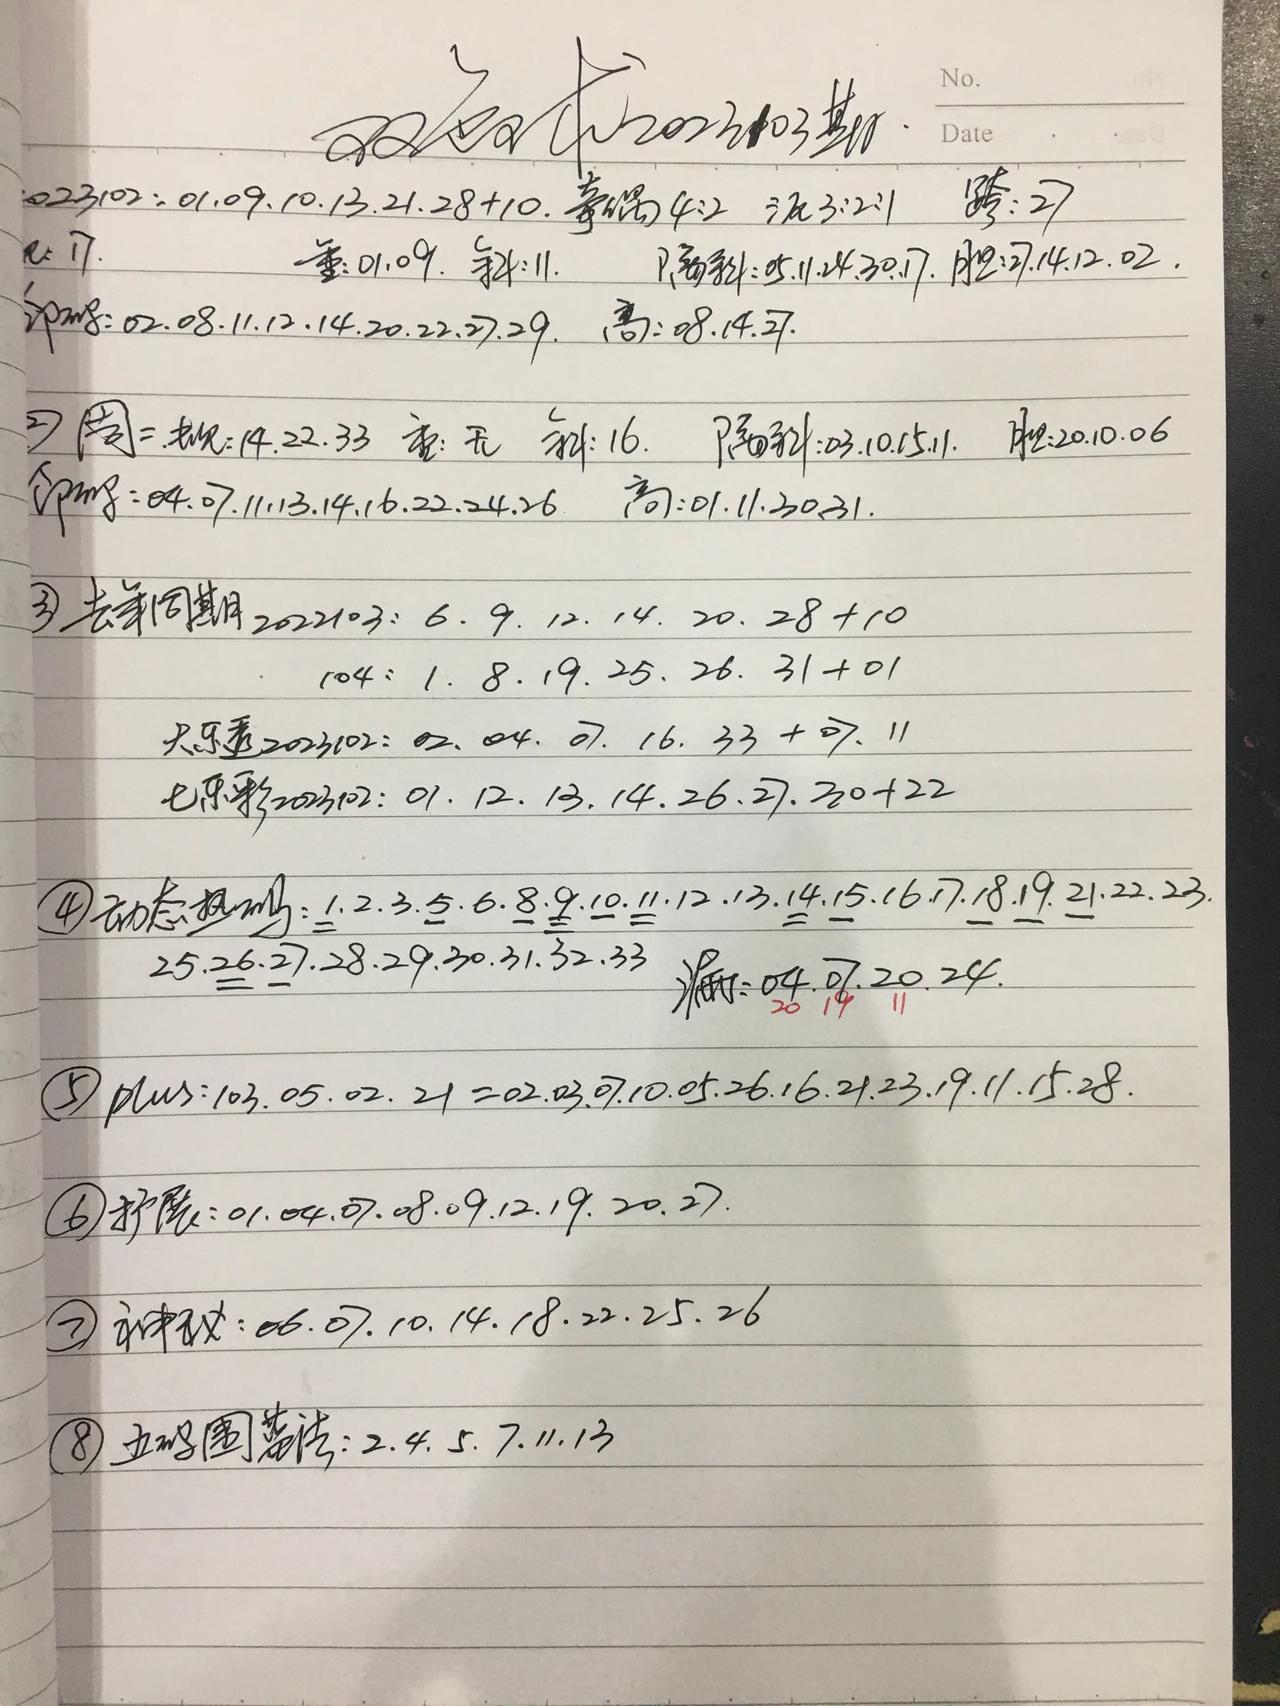 双色球2023103期.
No.
Date
023102: 01.09.10.13.21.28+10. 奇偶4:2 沉3:2:1 跨:27
: 17. 重:01.09. 斜:11. 隔斜:05.11.24.30.17. 胆:27.14.12.02.
邻码:02.08.11.12.14.20.22.27.29. 高:08.14.27.
2) 周二 规:14.22.33 重:无 斜:16. 隔斜:03.10.15.11. 胆:20.10.06
邻码:04.07.11.13.14.16.22.24.26 高:01.11.30.31.
③ 去年同期2022103: 6. 9. 12. 14. 20. 28+10
104: 1. 8. 19. 25. 26. 31+01
大乐透2023102: 02. 04. 07. 16. 33+07. 11
七乐彩2023102: 01. 12. 13. 14. 26. 27. 30+22
④ 动态热码:1.2.3.5.6.8.9.10.11.12.13.14.15.16.17.18.19.21.22.23.
25.26.27.28.29.30.31.32.33 漏:04.07.20.24.
20 19 11
⑤ plus:103.05.02.21=02.03.07.10.05.26.16.21.23.19.11.15.28.
⑥ 扩展:01.04.07.08.09.12.19.20.27.
⑦ 神秘:06.07.10.14.18.22.25.26
⑧ 五码围蓝法:2.4.5.7.11.13